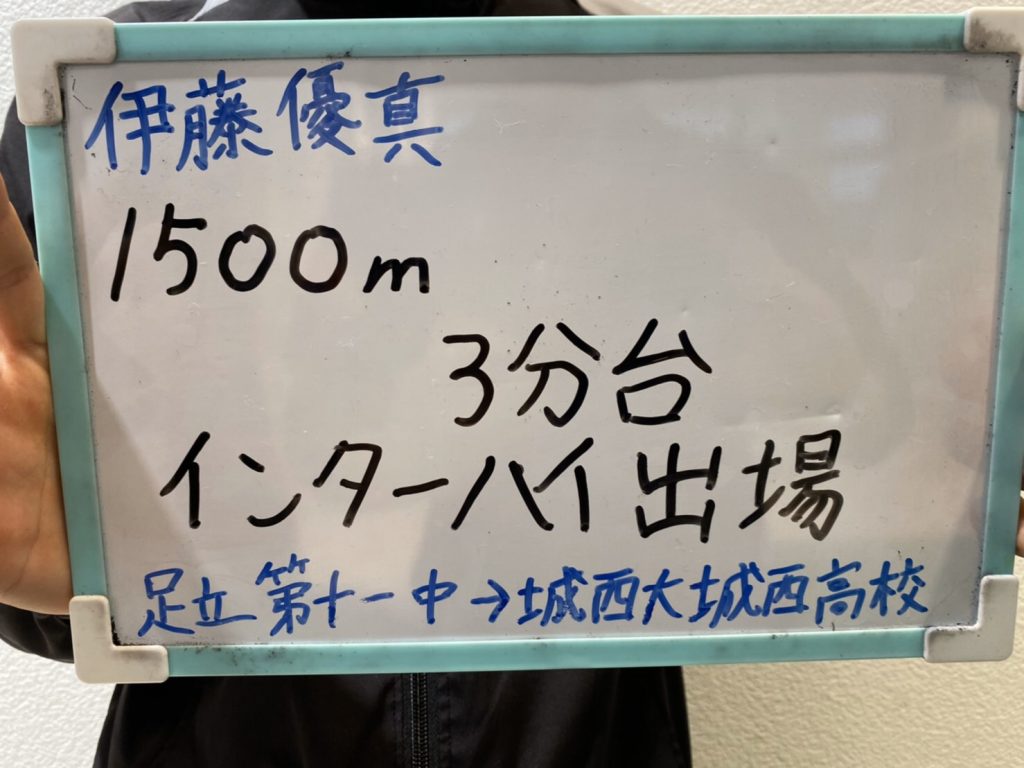 伊藤優真
1500m
3分台
インターハイ出場
足立第十一中→城西大城西高校